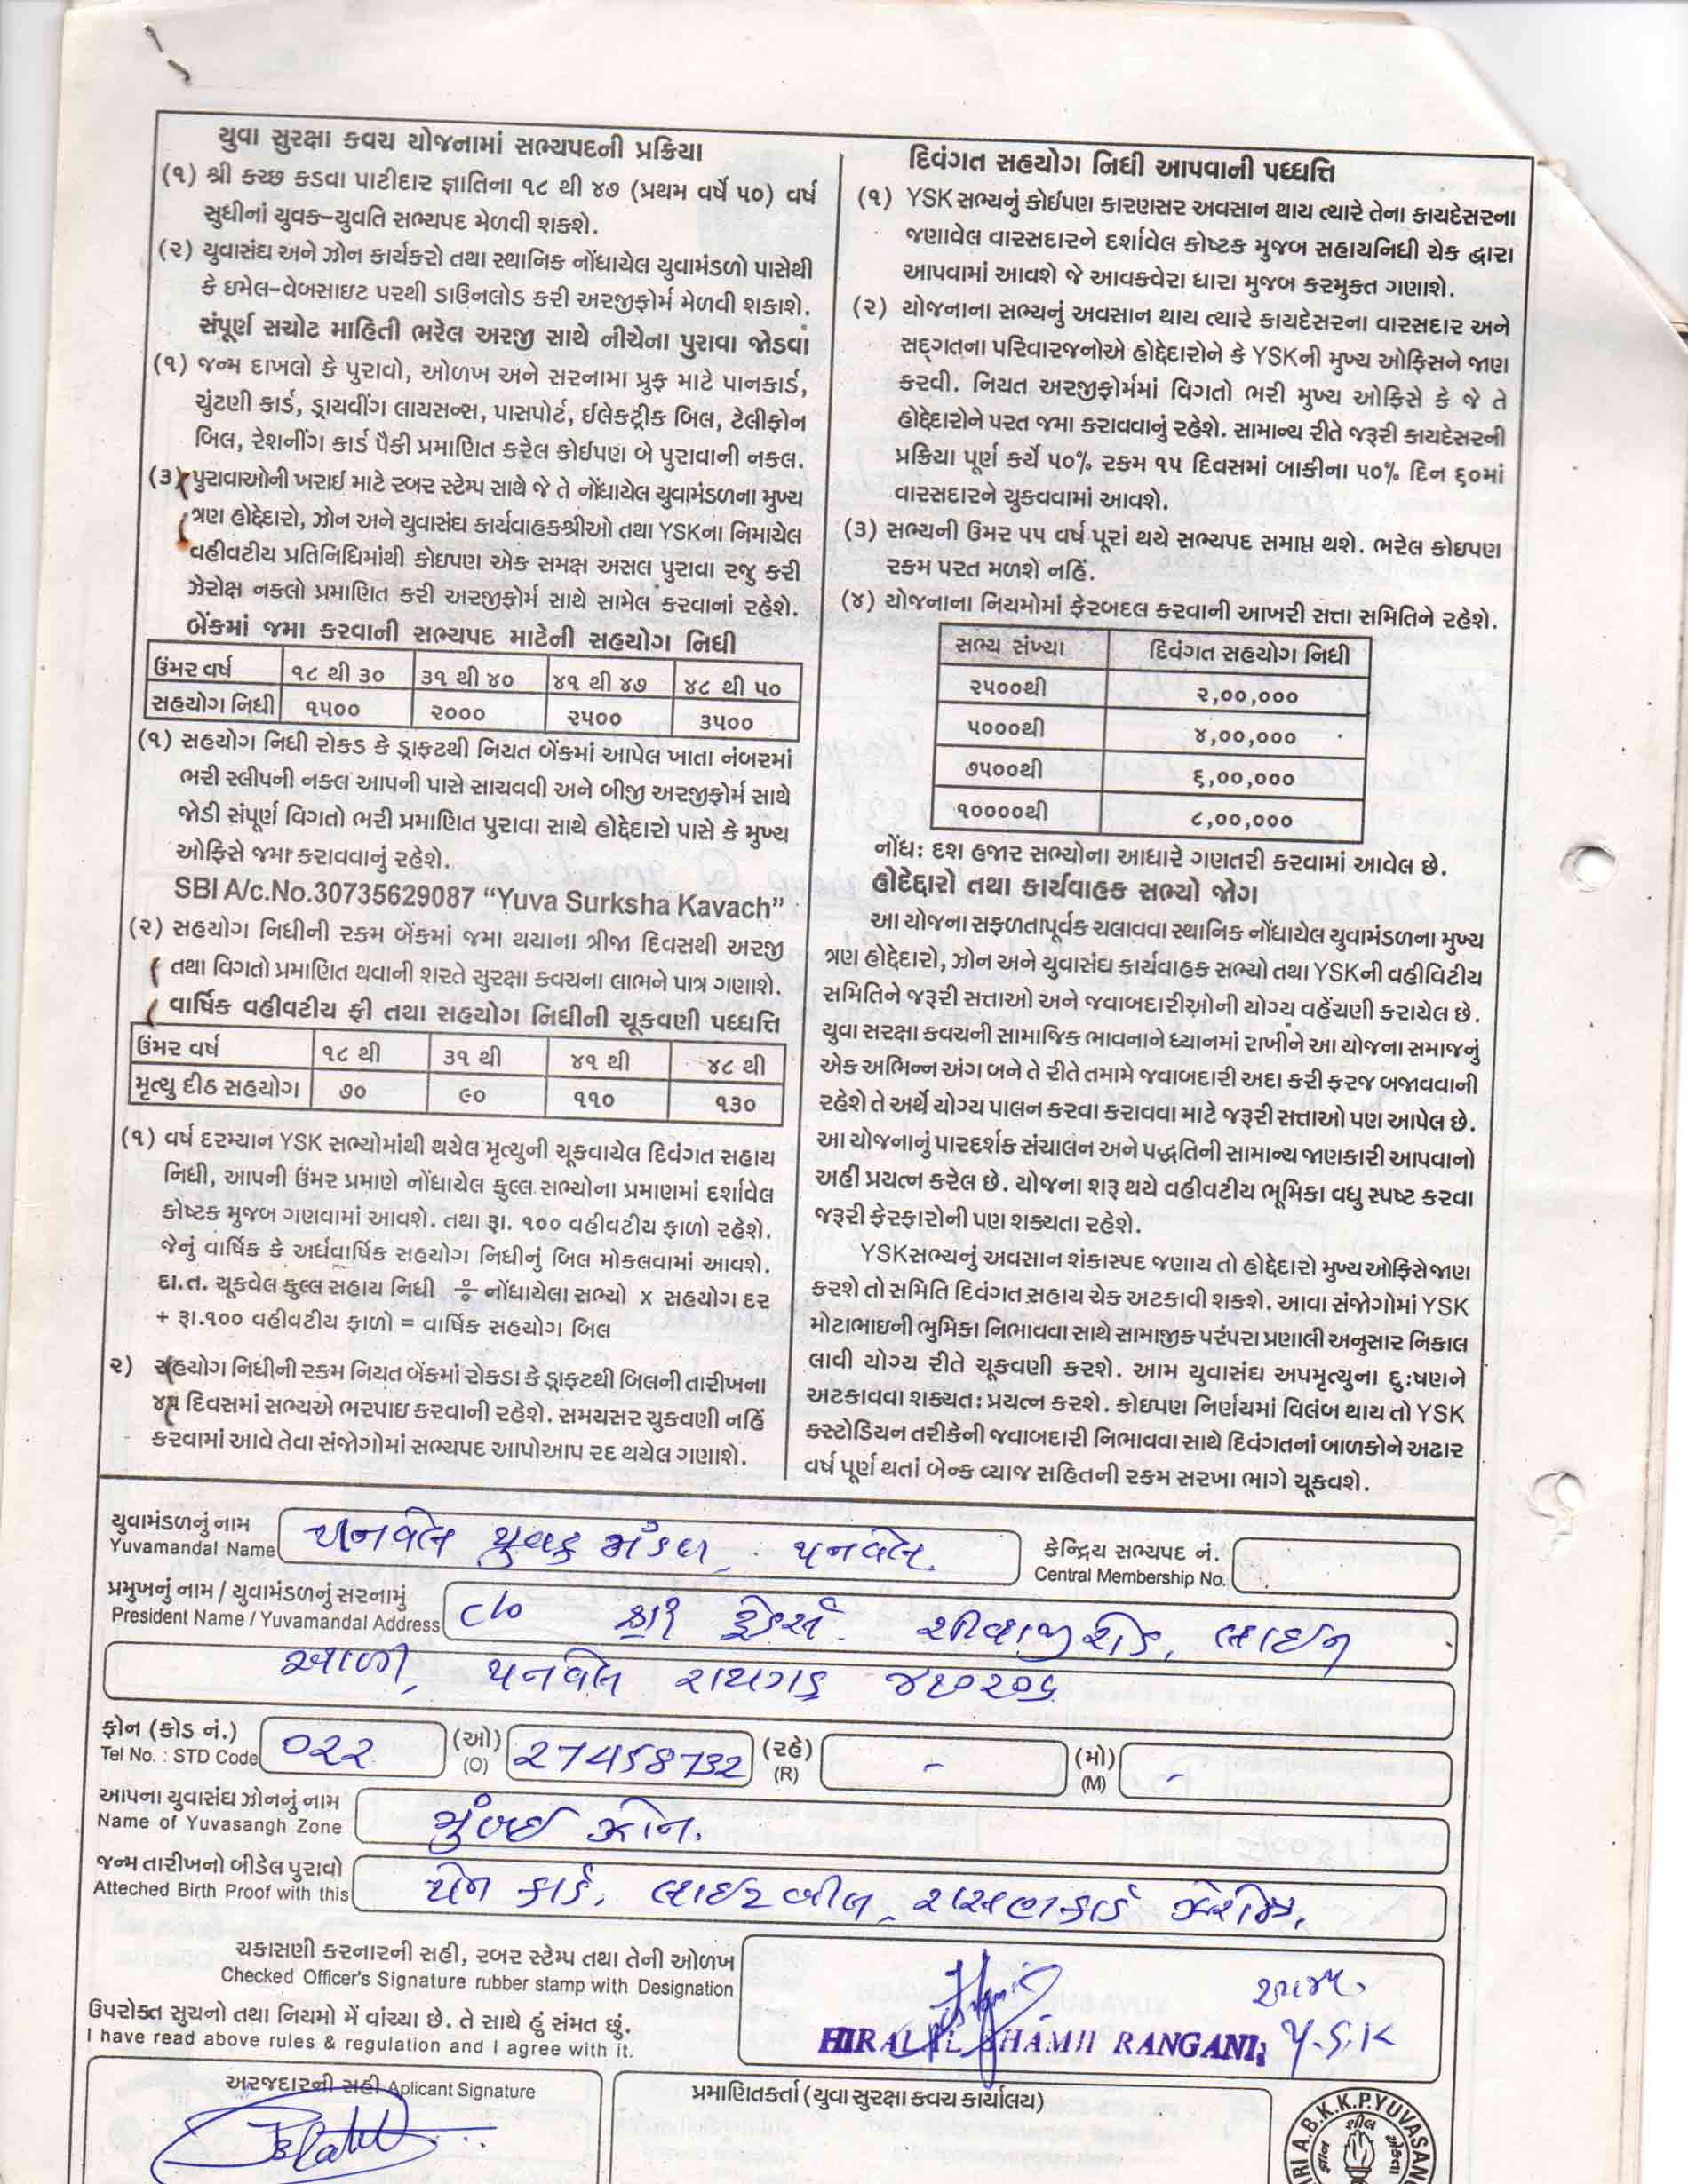 યુવા સુરક્ષા કવચ યોજનામાં સભ્યપદની પ્રક્રિયા
(૧) શ્રી કચ્છ કડવા પાટીદાર જ્ઞાતિના ૧૮ થી ૪૭ (પ્રથમ વર્ષે ૫૦) વર્ષ
સુધીનાં યુવક-યુવતિ સભ્યપદ મેળવી શકશે.
(૨) યુવાસંઘ અને ઝોન કાર્યકરો તથા સ્થાનિક નોંધાયેલ યુવામંડળો પાસેથી
કે ઇમેલ-વેબસાઇટ પરથી ડાઉનલોડ કરી અરજીફોર્મ મેળવી શકાશે.
સંપૂર્ણ સચોટ માહિતી ભરેલ અરજી સાથે નીચેના પુરાવા જોડવાં
(૧) જન્મ દાખલો કે પુરાવો, ઓળખ અને સરનામા પ્રુફ માટે પાનકાર્ડ,
ચુંટણી કાર્ડ, ડ્રાયવીંગ લાયસન્સ, પાસપોર્ટ, ઈલેકટ્રીક બિલ, ટેલીફોન
બિલ, રેશનીંગ કાર્ડ પૈકી પ્રમાણિત કરેલ કોઈપણ બે પુરાવાની નકલ.
(૩) પુરાવાઓની ખરાઈ માટે રબર સ્ટેમ્પ સાથે જે તે નોંધાયેલ યુવામંડળના મુખ્ય
ત્રણ હોદ્દેદારો, ઝોન અને યુવાસંઘ કાર્યવાહકશ્રીઓ તથા YSKના નિમાયેલ
વહીવટીય પ્રતિનિધિમાંથી કોઇપણ એક સમક્ષ અસલ પુરાવા રજુ કરી
ઝેરોક્ષ નકલો પ્રમાણિત કરી અરજીફોર્મ સાથે સામેલ કરવાનાં રહેશે.
બેંકમાં જમા કરવાની સભ્યપદ માટેની સહયોગ નિધી
ઉંમર વર્ષ ૧૮ થી ૩૦ ૩૧ થી ૪૦ ૪૧ થી ૪૭ ૪૮ થી ૫૦
સહયોગ નિધી ૧૫૦૦ ૨૦૦૦ ૨૫૦૦ ૩૫૦૦
(૧) સહયોગ નિધી રોકડ કે ડ્રાફટથી નિયત બેંકમાં આપેલ ખાતા નંબરમાં
ભરી સ્લીપની નકલ આપની પાસે સાચવવી અને બીજી અરજીફોર્મ સાથે
જોડી સંપૂર્ણ વિગતો ભરી પ્રમાણિત પુરાવા સાથે હોદ્દેદારો પાસે કે મુખ્ય
ઓફિસે જમા કરાવવાનું રહેશે.
SBI A/c.No.30735629087 “Yuva Surksha Kavach”
(૨) સહયોગ નિધીની રકમ બેંકમાં જમા થયાના ત્રીજા દિવસથી અરજી
તથા વિગતો પ્રમાણિત થવાની શરતે સુરક્ષા કવચના લાભને પાત્ર ગણાશે.
વાર્ષિક વહીવટીય ફી તથા સહયોગ નિધીની ચૂકવણી પધ્ધત્તિ
ઉંમર વર્ષ ૧૮ થી ૩૧ થી ૪૧ થી ૪૮ થી
મૃત્યુ દીઠ સહયોગ ૭૦ ૯૦ ૧૧૦ ૧૩૦
(૧) વર્ષ દરમ્યાન YSK સભ્યોમાંથી થયેલ મૃત્યુની ચૂકવાયેલ દિવંગત સહાય
નિધી, આપની ઉંમર પ્રમાણે નોંધાયેલ કુલ્લ સભ્યોના પ્રમાણમાં દર્શાવેલ
કોષ્ટક મુજબ ગણવામાં આવશે. તથા રૂા. ૧૦૦ વહીવટીય ફાળો રહેશે.
જેનું વાર્ષિક કે અર્ધવાર્ષિક સહયોગ નિધીનું બિલ મોકલવામાં આવશે.
દા.ત. ચૂકવેલ કુલ્લ સહાય નિધી ÷ નોંધાયેલા સભ્યો x સહયોગ દર
+ રૂા.૧૦૦ વહીવટીય ફાળો = વાર્ષિક સહયોગ બિલ
૨) સહયોગ નિધીની રકમ નિયત બેંકમાં રોકડા કે ડ્રાફટથી બિલની તારીખના
૪૫ દિવસમાં સભ્યએ ભરપાઇ કરવાની રહેશે. સમયસર ચુકવણી નહિં
કરવામાં આવે તેવા સંજોગોમાં સભ્યપદ આપોઆપ રદ થયેલ ગણાશે.
દિવંગત સહયોગ નિધી આપવાની પધ્ધત્તિ
(૧) YSK સભ્યનું કોઈપણ કારણસર અવસાન થાય ત્યારે તેના કાયદેસરના
જણાવેલ વારસદારને દર્શાવેલ કોષ્ટક મુજબ સહાયનિધી ચેક દ્વારા
આપવામાં આવશે જે આવક્વેરા ધારા મુજબ કરમુક્ત ગણાશે.
(૨) યોજનાના સભ્યનું અવસાન થાય ત્યારે કાયદેસરના વારસદાર અને
સદ્‌ગતના પરિવારજનોએ હોદ્દેદારોને કે YSKની મુખ્ય ઓફિસને જાણ
કરવી. નિયત અરજીફોર્મમાં વિગતો ભરી મુખ્ય ઓફિસે કે જે તે
હોદ્દેદારોને પરત જમા કરાવવાનું રહેશે. સામાન્ય રીતે જરૂરી કાયદેસરની
પ્રક્રિયા પૂર્ણ કર્યે ૫૦% રકમ ૧૫ દિવસમાં બાકીના ૫૦% દિન ૬૦માં
વારસદારને ચુકવવામાં આવશે.
(૩) સભ્યની ઉમર ૫૫ વર્ષ પૂરાં થયે સભ્યપદ સમાપ્ત થશે. ભરેલ કોઇપણ
રકમ પરત મળશે નહિં.
(૪) યોજનાના નિયમોમાં ફેરબદલ કરવાની આખરી સત્તા સમિતિને રહેશે.
સભ્ય સંખ્યા દિવંગત સહયોગ નિધી
૨૫૦૦થી ૨,૦૦,૦૦૦
૫૦૦૦થી ૪,૦૦,૦૦૦
૭૫૦૦થી ૬,૦૦,૦૦૦
૧૦૦૦૦થી ૮,૦૦,૦૦૦
નોંધ: દશ હજાર સભ્યોના આધારે ગણતરી કરવામાં આવેલ છે.
હોદેદ્દારો તથા કાર્યવાહક સભ્યો જોગ
આ યોજના સફળતાપૂર્વક ચલાવવા સ્થાનિક નોંધાયેલ યુવામંડળના મુખ્ય
ત્રણ હોદ્દેદારો, ઝોન અને યુવાસંઘ કાર્યવાહક સભ્યો તથા YSKની વહીવિટીય
સમિતિને જરૂરી સત્તાઓ અને જવાબદારીઓની યોગ્ય વહેંચણી કરાયેલ છે.
યુવા સરક્ષા કવચની સામાજિક ભાવનાને ધ્યાનમાં રાખીને આ યોજના સમાજનું
એક અભિન્ન અંગ બને તે રીતે તમામે જવાબદારી અદા કરી ફરજ બજાવવાની
રહેશે તે અર્થે યોગ્ય પાલન કરવા કરાવવા માટે જરૂરી સત્તાઓ પણ આપેલ છે.
આ યોજનાનું પારદર્શક સંચાલન અને પદ્ધતિની સામાન્ય જાણકારી આપવાનો
અહીં પ્રયત્ન કરેલ છે. યોજના શરૂ થયે વહીવટીય ભૂમિકા વધુ સ્પષ્ટ કરવા
જરૂરી ફેરફારોની પણ શક્યતા રહેશે.
YSKસભ્યનું અવસાન શંકાસ્પદ જણાય તો હોદ્દેદારો મુખ્ય ઓફિસે જાણ
કરશે તો સમિતિ દિવંગત સહાય ચેક અટકાવી શકશે. આવા સંજોગોમાં YSK
મોટાભાઇની ભુમિકા નિભાવવા સાથે સામાજીક પરંપરા પ્રણાલી અનુસાર નિકાલ
લાવી યોગ્ય રીતે ચૂકવણી કરશે. આમ યુવાસંઘ અપમૃત્યુના દુ:ષણને
અટકાવવા શક્યત: પ્રયત્ન કરશે. કોઇપણ નિર્ણયમાં વિલંબ થાય તો YSK
કસ્ટોડિયન તરીકેની જવાબદારી નિભાવવા સાથે દિવંગતનાં બાળકોને અઢાર
વર્ષ પૂર્ણ થતાં બેન્ક વ્યાજ સહિતની રકમ સરખા ભાગે ચૂકવશે.
યુવામંડળનું નામ પનવેલ યુવક મંડળ, પનવેલ. કેન્દ્રિય સભ્યપદ નં.
Yuvamandal Name Central Membership No.
પ્રમુખનું નામ / યુવામંડળનું સરનામું
President Name / Yuvamandal Address c/o શીવાજી રોડ, લાઈન
આળી, પનવેલ રાયગડ ૪૧૦૨૦૬
ફોન (કોડ નં.) 022 (ઓ) 27458732 (રહે) - (મો) -
Tel No. : STD Code (O) (R) (M)
આપના યુવાસંઘ ઝોનનું નામ મુંબઈ ઝોન.
Name of Yuvasangh Zone
જન્મ તારીખનો બીડેલ પુરાવો પેન કાર્ડ, લાઈટ બીલ, રાસણકાર્ડ
Atteched Birth Proof with this
ચકાસણી કરનારની સહી, રબર સ્ટેમ્પ તથા તેની ઓળખ
Checked Officer's Signature rubber stamp with Designation
HIRALAL SHAMJI RANGANI, Y.S.K
ઉપરોક્ત સુચનો તથા નિયમો મેં વાંચ્યા છે. તે સાથે હું સંમત છું.
I have read above rules & regulation and I agree with it.
અરજદારની સહી Aplicant Signature
પ્રમાણિતકર્તા (યુવા સુરક્ષા કવચ કાર્યાલય)
A.B.K.K.P.YUVASAN